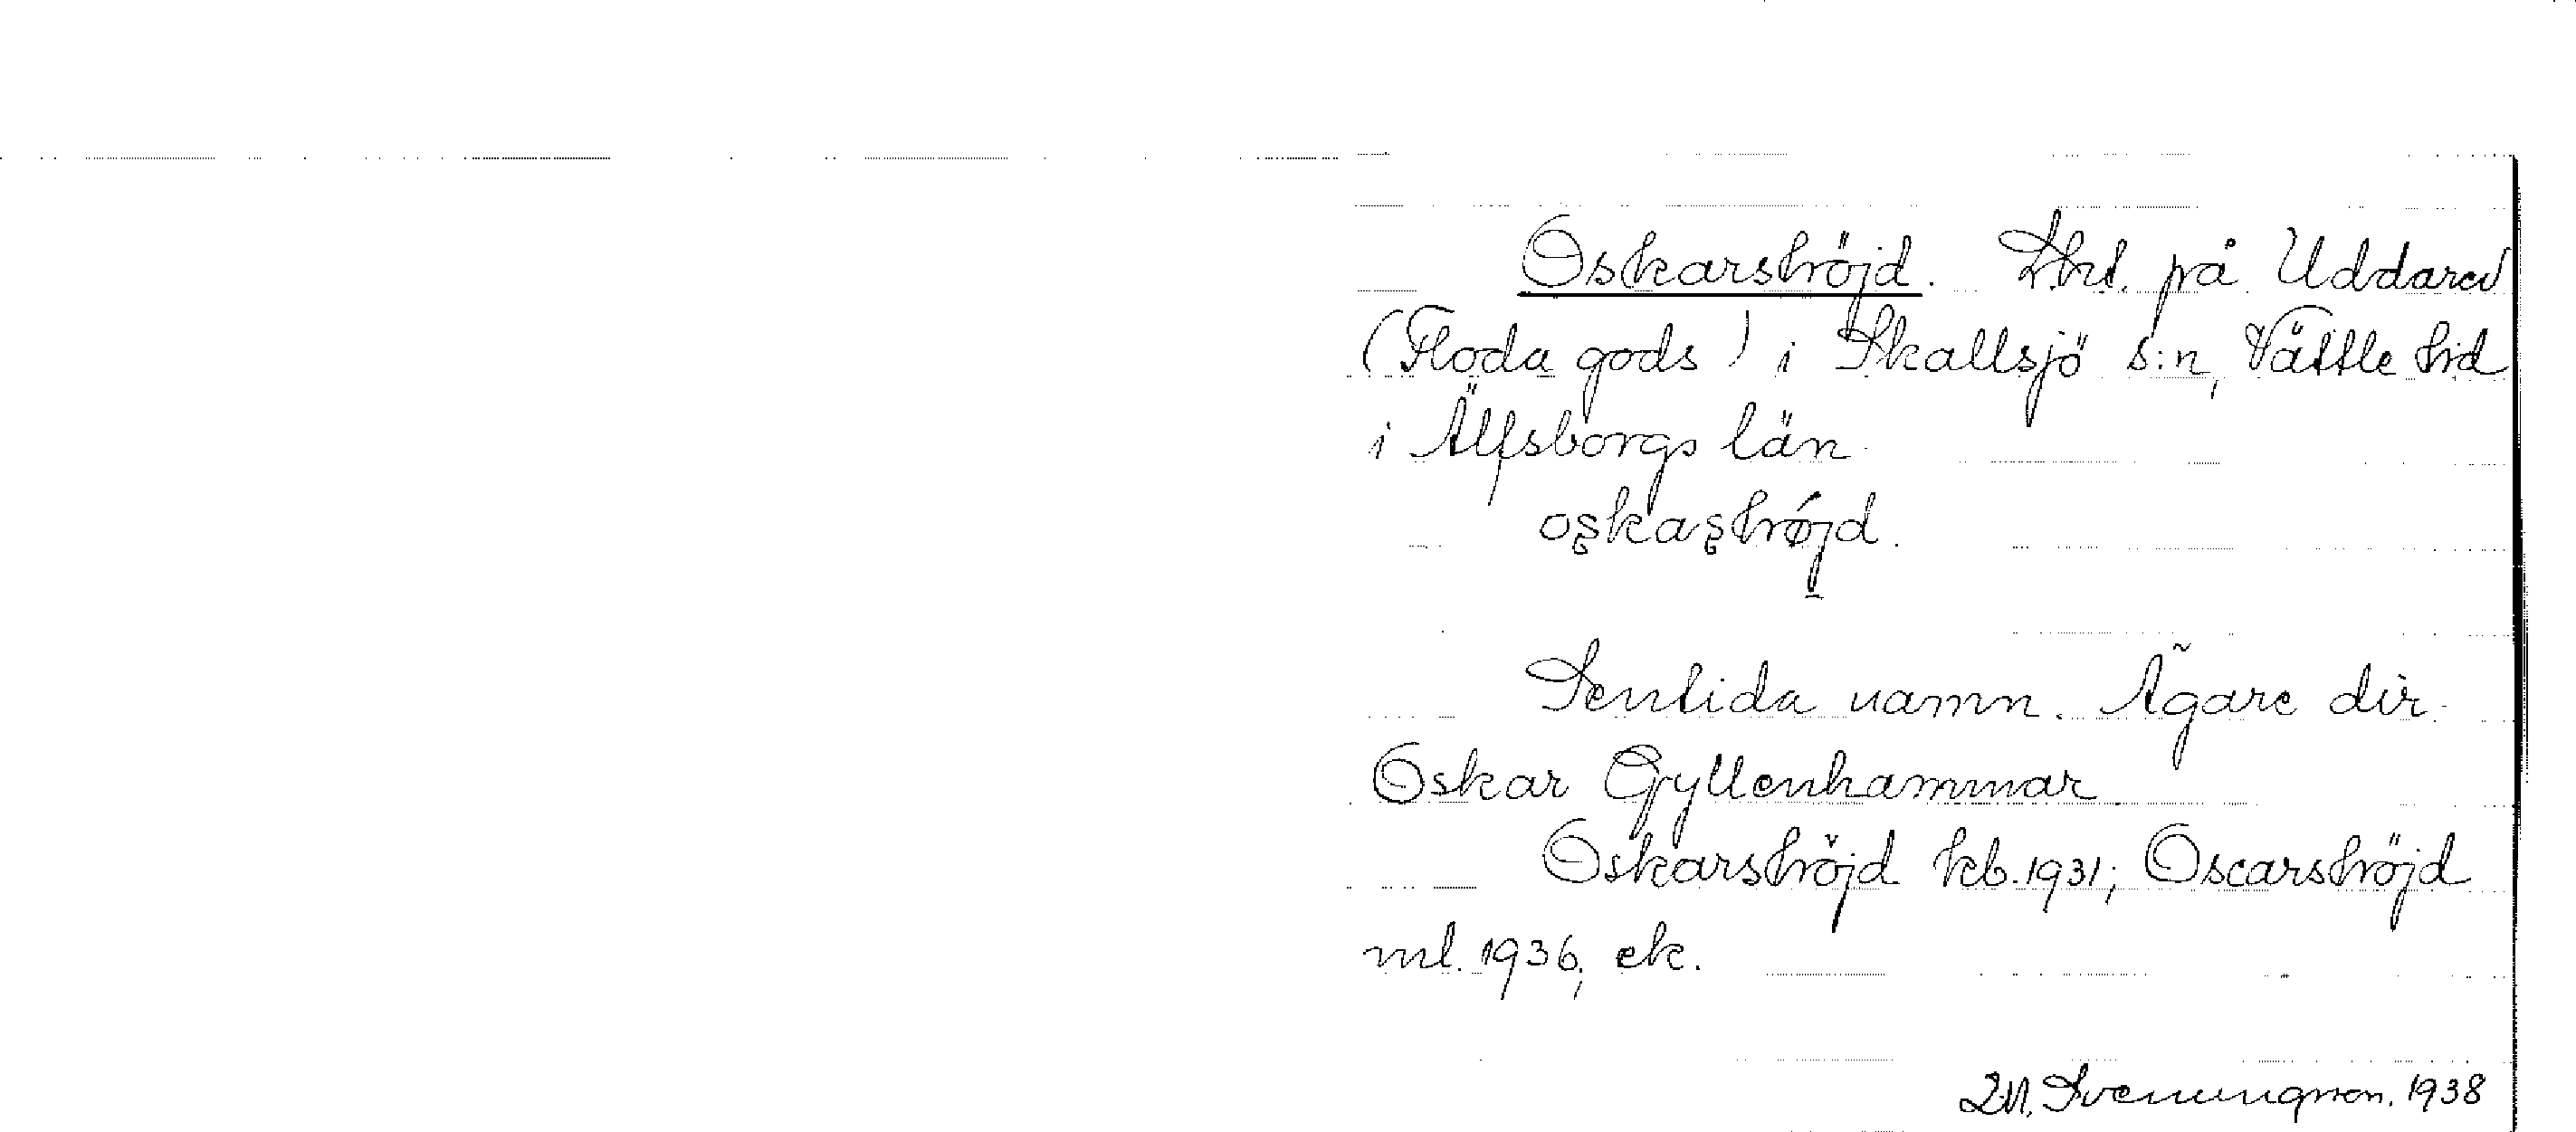 Oskarshöjd. Lht. på Uddared
(Floda gods) i Skallsjö s:n, Vättle hd
i Älfsborgs län
oskashøjd.
Sentida namn. Ägare dir.
Oskar Gyllenhammar
Oskarshöjd kb. 1931; Oscarshöjd
ml. 1936, ek.
Svenungsson. 1938